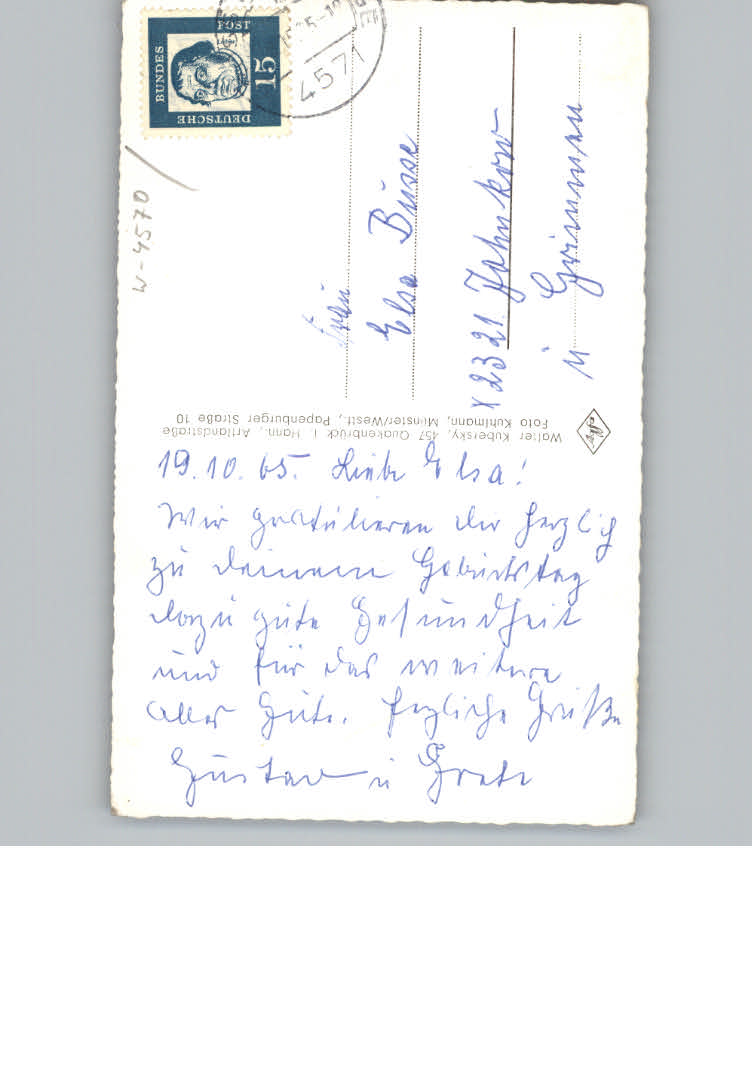 19.10.65. Liebe Elsa!
Wir gratulieren dir herzlich
zu deinem Geburtstag
dazu gute Gesundheit
und für das weitere
alles Gute. Herzliche Grüße
Gustav u Grete
Frau
Elsa Büsse
X2321 Jahnkow
ü Grimmen
Walter Kubersky, 457 Quakenbrück i. Hann., Artlandstraße
Foto Kuhlmann, Münster/Westf., Papenburger Straße 10
DEUTSCHE
BUNDES
POST
15
4571
W-4570